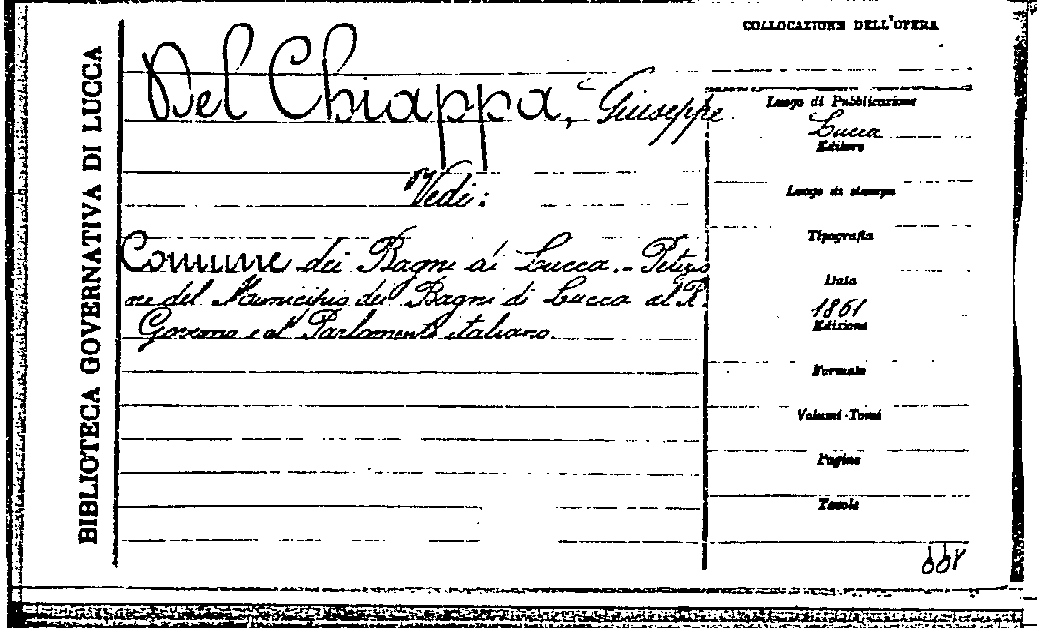 BIBLIOTECA GOVERNATIVA DI LUCCA
COLLOCAZIONE DELL'OPERA
Del Chiappa, Giuseppe
Vedi:
Comune dei Bagni di Lucca. - Petizio
ne del Municipio dei Bagni di Lucca al R.
Governo e al Parlamento italiano.
Luogo di Pubblicazione
Lucca
Editore
Luogo di stampa
Tipografia
Data
1861
Edizione
Formato
Volumi-Tomi
Pagine
Tavole